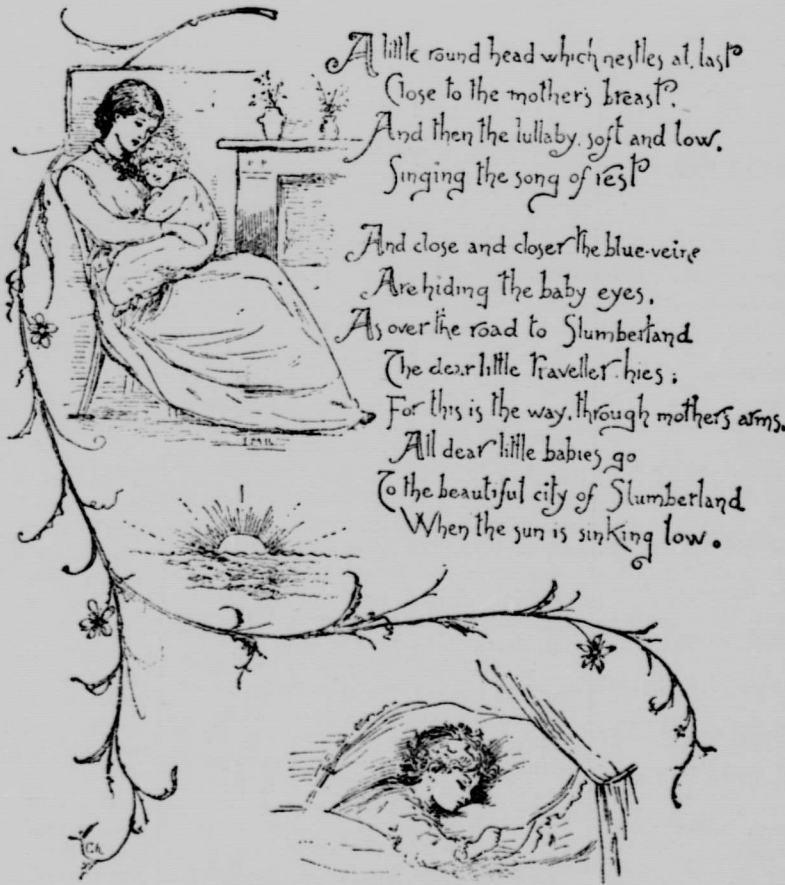 A little round head which nestles at last
Close to the mother's breast.
And then the lullaby, soft and low,
Singing the song of rest
And close and closer the blue-veine
Are hiding the baby eyes,
As over the road to Slumberland
The dear little traveller hies;
For this is the way, through mother's arms,
All dear little babies go
To the beautiful city of Slumberland
When the sun is sinking low.